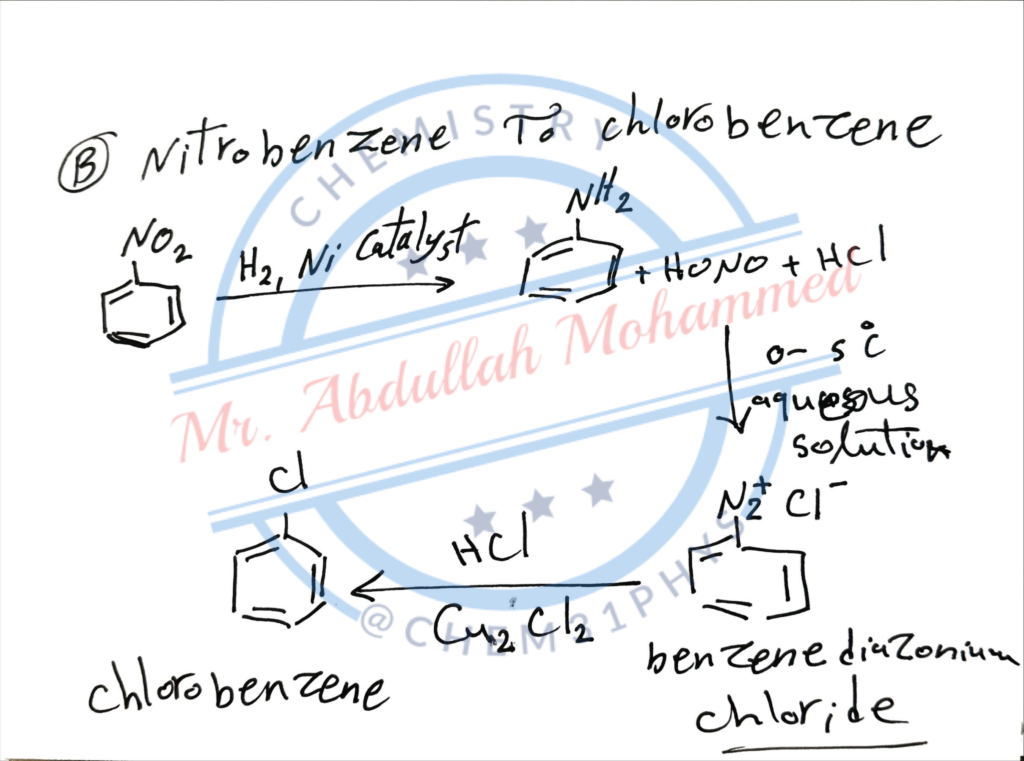 B Nitrobenzene To chlorobenzene
NO2
H2, Ni Catalyst
NH2
+ HONO + HCl
0- 5 °C
aqueous
solution
N2+ Cl-
benzene diazonium
chloride
HCl
Cu2 Cl2
Cl
chlorobenzene
CHEMISTRY
Mr. Abdullah Mohammed
@CHEM31PHYS